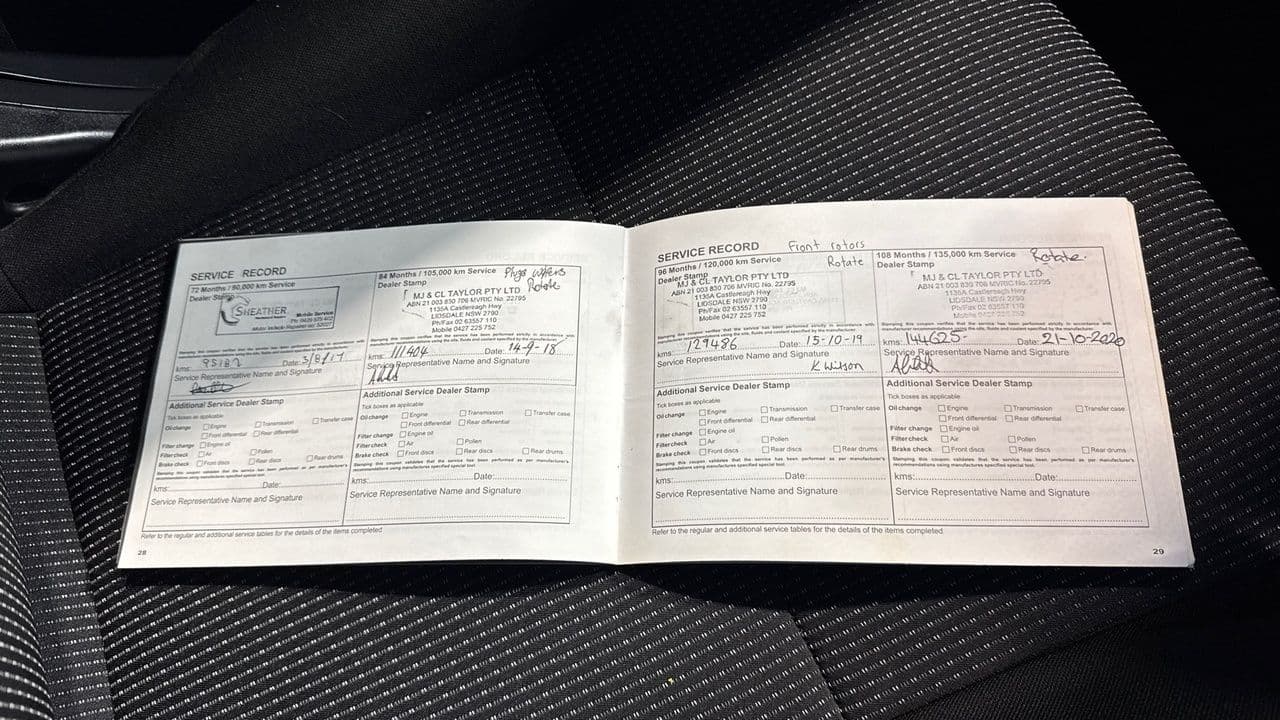 SERVICE RECORD
72 Months / 90,000 km Service
Dealer Stamp
SHEATHER
Mobile Service
Date: 3/8/17
kms: 95187
Service Representative Name and Signature
Additional Service Dealer Stamp
Tick boxes as applicable
Oil change Engine Transmission Transfer case
Front differential Rear differential
Filter change Engine oil
Filter check Air Pollen
Brake check Front discs Rear discs Rear drums
Stamping this coupon validates that the service has been performed as per manufacturer's
recommendations using manufactures specified special tool.
kms: Date:
Service Representative Name and Signature
84 Months / 105,000 km Service Plugs wipers
Dealer Stamp Rotate
MJ & CL TAYLOR PTY LTD
ABN 21 003 830 706 MVRIC No. 22795
1135A Castlereagh Hwy
LIDSDALE NSW 2790
Ph/Fax 02 63557 110
Mobile 0427 225 752
Stamping this coupon verifies that the service has been performed strictly in accordance with
manufacturer recommendations using the oils, fluids and coolant specified by the manufacturer.
kms: 111404 Date: 14-9-18
Service Representative Name and Signature
Additional Service Dealer Stamp
Tick boxes as applicable
Oil change Engine Transmission Transfer case
Front differential Rear differential
Filter change Engine oil
Filter check Air Pollen
Brake check Front discs Rear discs Rear drums
Stamping this coupon validates that the service has been performed as per manufacturer's
recommendations using manufactures specified special tool.
kms: Date:
Service Representative Name and Signature
Refer to the regular and additional service tables for the details of the items completed
28
SERVICE RECORD Front rotors
96 Months / 120,000 km Service Rotate
Dealer Stamp
MJ & CL TAYLOR PTY LTD
ABN 21 003 830 706 MVRIC No. 22795
1135A Castlereagh Hwy
LIDSDALE NSW 2790
Ph/Fax 02 63557 110
Mobile 0427 225 752
Stamping this coupon verifies that the service has been performed strictly in accordance with
manufacturer recommendations using the oils, fluids and coolant specified by the manufacturer.
kms: 129486 Date: 15-10-19
Service Representative Name and Signature
K Wilson
Additional Service Dealer Stamp
Tick boxes as applicable
Oil change Engine Transmission Transfer case
Front differential Rear differential
Filter change Engine oil
Filter check Air Pollen
Brake check Front discs Rear discs Rear drums
Stamping this coupon validates that the service has been performed as per manufacturer's
recommendations using manufactures specified special tool.
kms: Date:
Service Representative Name and Signature
108 Months / 135,000 km Service Rotate.
Dealer Stamp
MJ & CL TAYLOR PTY LTD
ABN 21 003 830 706 MVRIC No. 22795
1135A Castlereagh Hwy
LIDSDALE NSW 2790
Ph/Fax 02 63557 110
Mobile 0427 225 752
Stamping this coupon verifies that the service has been performed strictly in accordance with
manufacturer recommendations using the oils, fluids and coolant specified by the manufacturer.
kms: 144625- Date: 21-10-2020
Service Representative Name and Signature
Additional Service Dealer Stamp
Tick boxes as applicable
Oil change Engine Transmission Transfer case
Front differential Rear differential
Filter change Engine oil
Filter check Air Pollen
Brake check Front discs Rear discs Rear drums
Stamping this coupon validates that the service has been performed as per manufacturer's
recommendations using manufactures specified special tool.
kms: Date:
Service Representative Name and Signature
Refer to the regular and additional service tables for the details of the items completed.
29